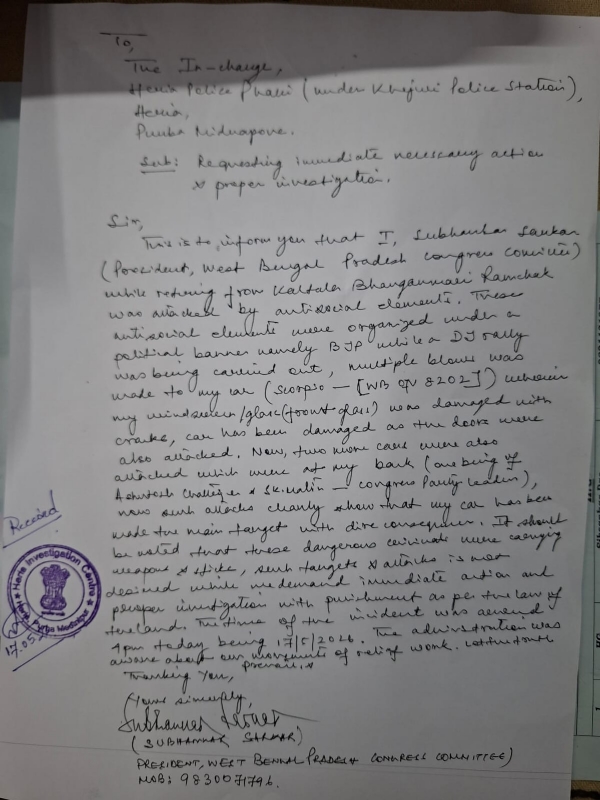 To,
The In-charge,
Heria Police Phari (under Khejuri Police Station),
Heria,
Purba Midnapore.
Sub: Requesting immediate necessary action
& proper investigation.
Sir,
This is to inform you that I, Subhankar Sarkar
(President, West Bengal Pradesh Congress Committee)
while returing from Kaltala Bhanganmari Ramchak
was attacked by antisocial elements. These
antisocial elements were organized under a
political banner namely BJP while a DJ rally
was being carried out, multiple blows was
made to my car (Scorpio – [WB 8202]) wherein
my windscreen/glass (front glass) was damaged with
cracks, car has been damaged as the doors were
also attacked. Now, two more cars were also
attacked which were at my back (one being of
Ashutosh Chatterjee & Sk. – Congress Party leaders),
now such attacks clearly show that my car has been
made the main target with dire consequences. It should
be noted that these dangerous criminals were carrying
weapons & sticks, such targets & attacks is not
desired while we demand immediate action and
proper investigation with punishment as per the law of
the land. The time of the incident was around
4pm today being 17/5/2026. The administration was
aware about our movements of relief work. Let the truth
prevail.
Thanking You,
Yours sincerely,
Subhankar Sarkar
(SUBHANKAR SARKAR)
PRESIDENT, WEST BENGAL PRADESH CONGRESS COMMITTEE)
MOB: 9830071796.
Received
Heria Investigation Centre
Purba Medinipur
17.05